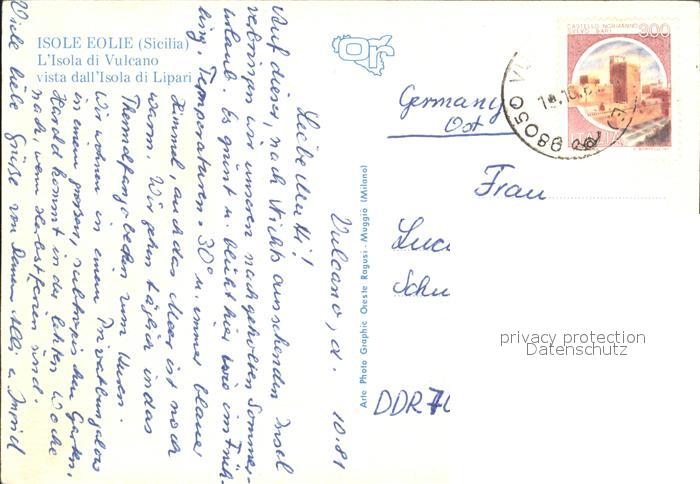 ISOLE EOLIE (Sicilia)
L'Isola di Vulcano
vista dall'Isola di Lipari
CASTELLO NORMANNO
SVEVO BARI
300
ITALIA
98050
Germany
Ost
Frau
Luc
Schu
DDR 70
privacy protection
Datenschutz
Arte Photo Graphic Oreste Ragusi - Muggiò (Milano)
Vulcano, d. 10.81
Liebe Mutti!
Auf dieser, nach Nichts aussehenden Insel
verbringen wir unseren nachgeholten Sommer-
urlaub. Es grünt u. blüht hier wie im Früh-
ling. Temperaturen 30° u. immer blauer
Himmel, auch das Meer ist noch
warm. Wir gehen täglich in das
zum
Wir wohnen in einem Privatbungalow
in einem großen, subtropischen Garten.
Harald kommt in der letzten Woche
nach, wenn Herbstferien sind.
Viele liebe Grüße von Deinen u. Ingrid